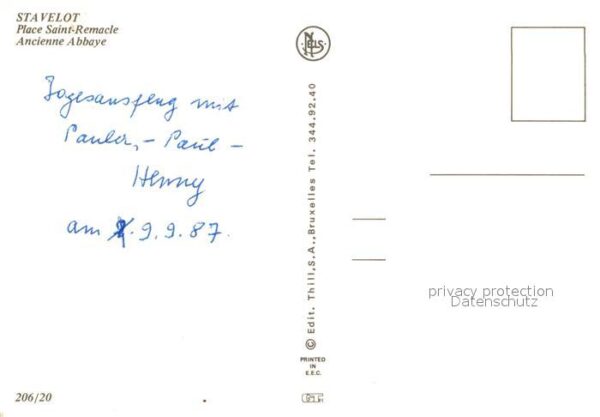 STAVELOT
Place Saint-Remacle
Ancienne Abbaye
Tagesausflug mit
Paul -
Henny
am 9.9.87.
206/20
NELS
© Edit. Thill, S.A., Bruxelles Tel. 344.92.40
PRINTED
IN
E.E.C.
privacy protection
Datenschutz